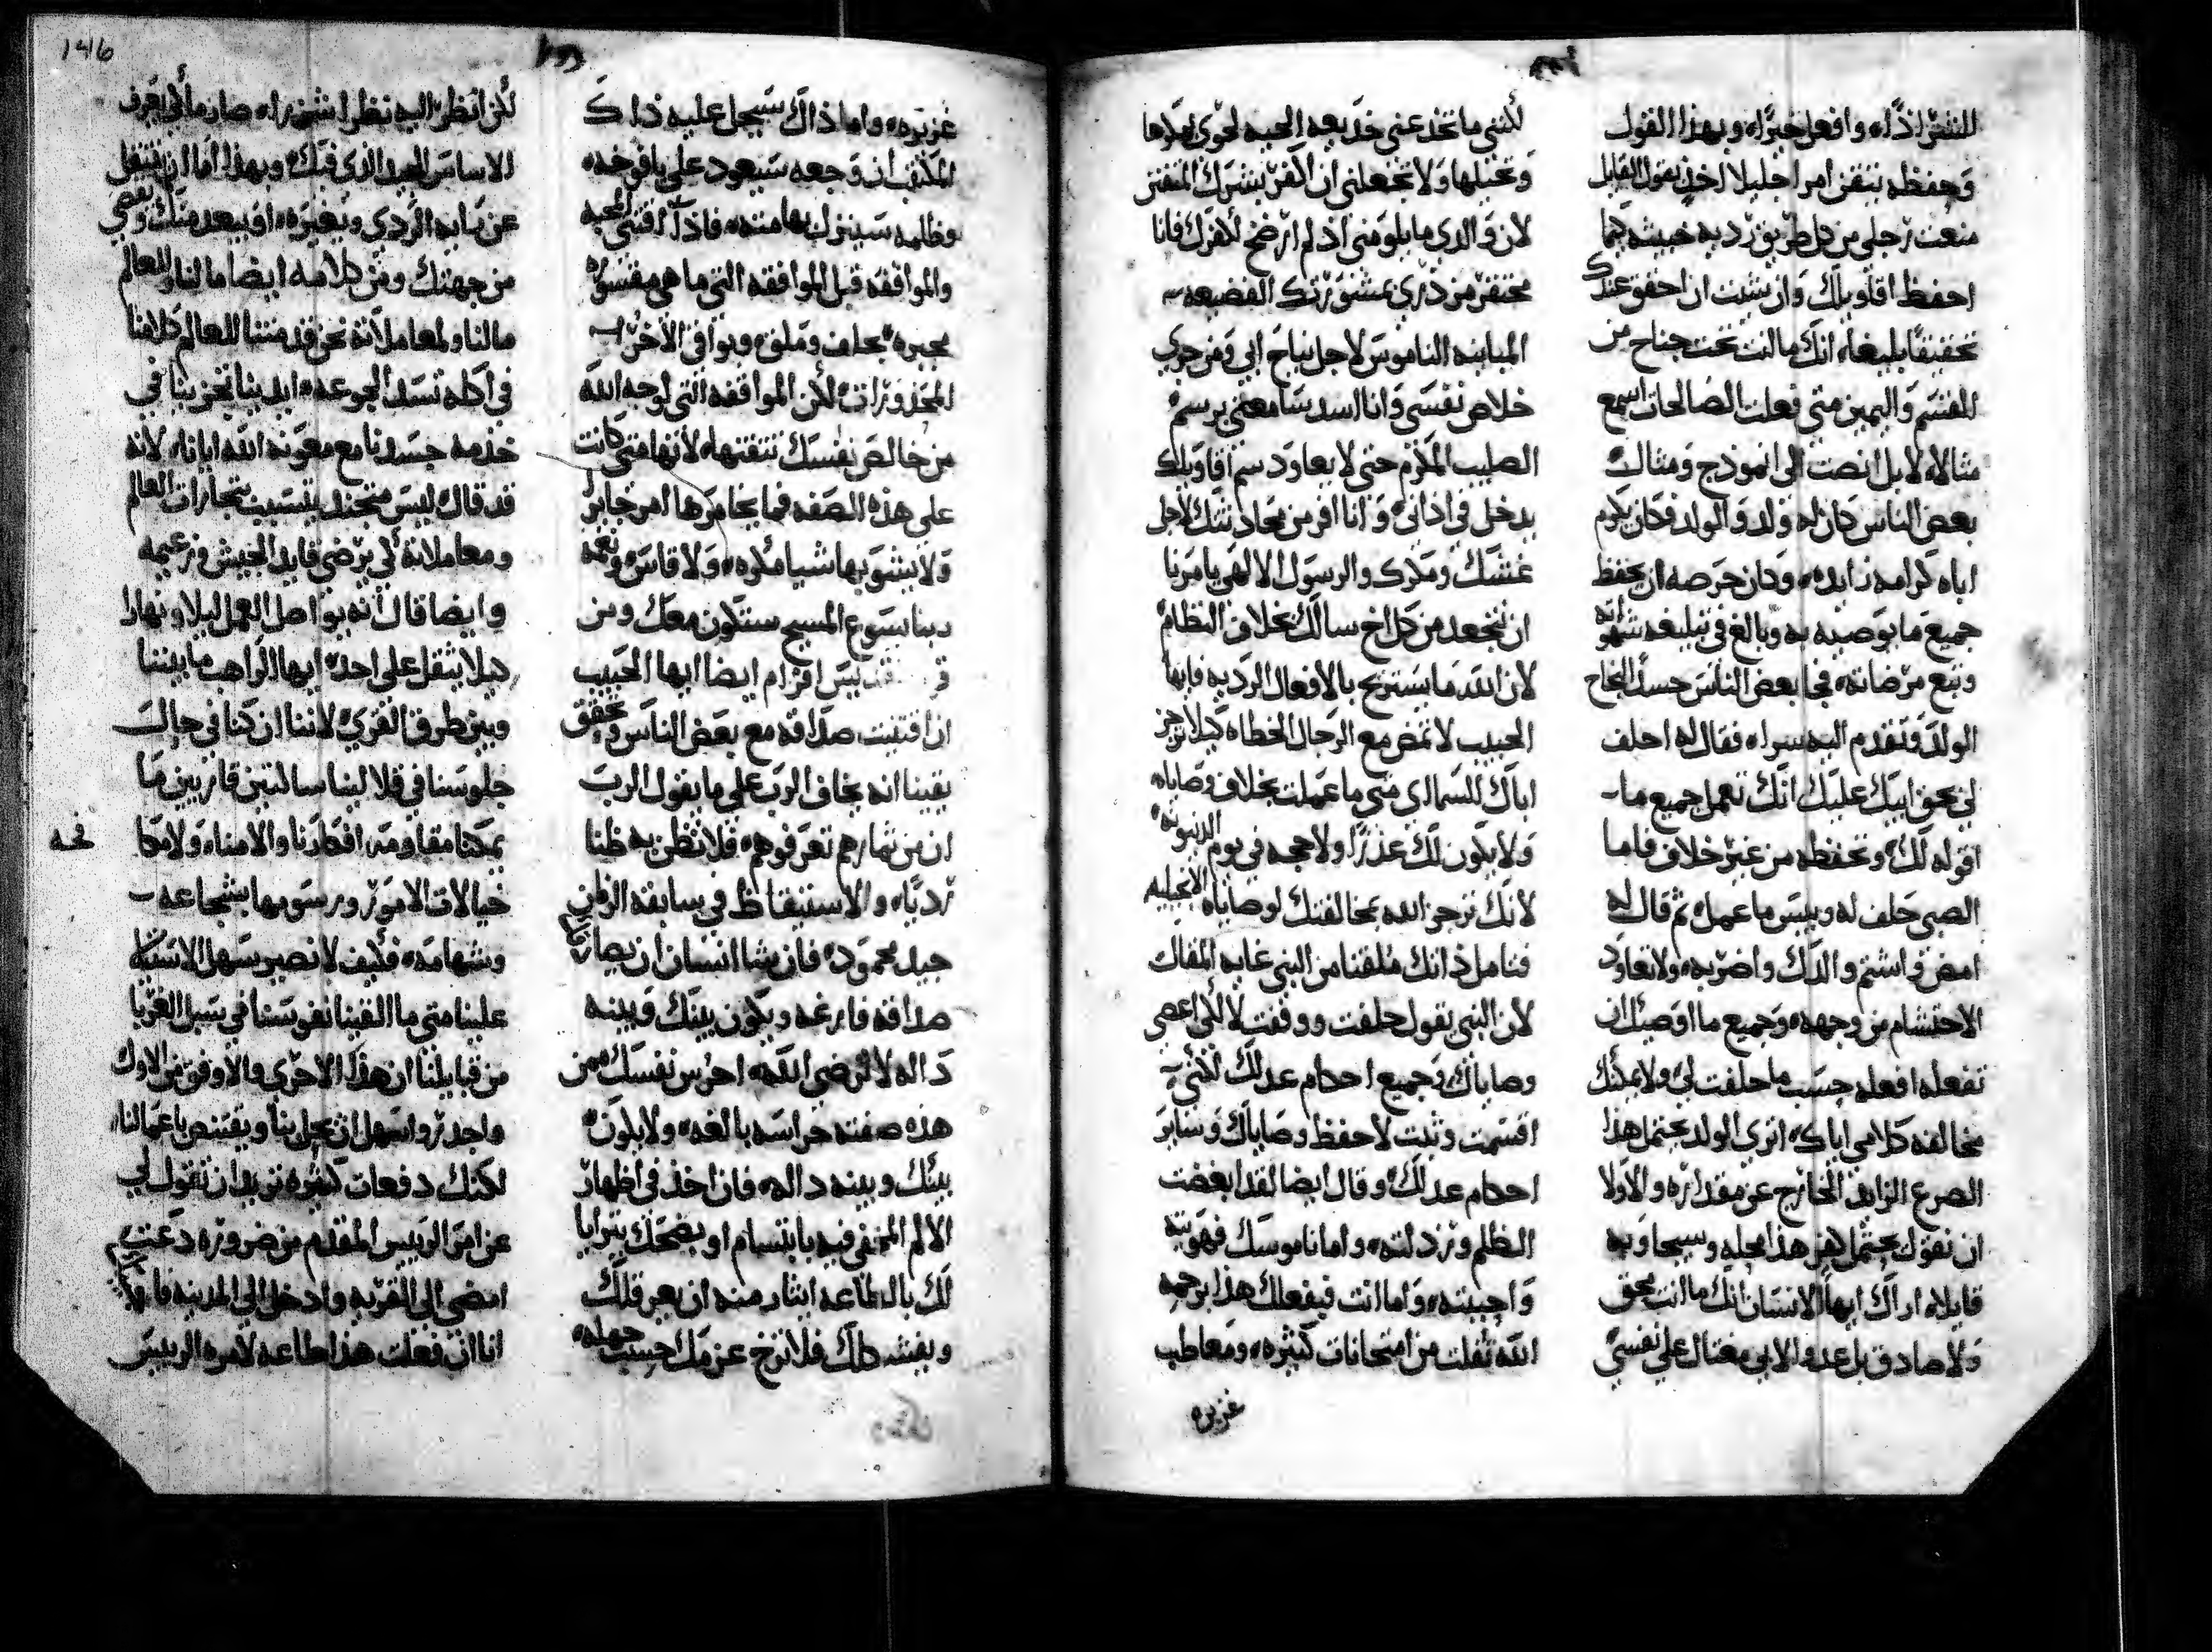 للشر اذًا وافعل خيرًا وبهذا القول
وحفظه تتقن امرا جليلا اخذ بقول القايل
منعت رجلي من كل طريق رديه خبيثه كيما
احفظ اقاويلك وان شيت ان احقق عندك
تحقيقًا بليغا انك ما كنت تحت جناح من
القسم واليمين متي فعلت الصالحات اسمع
مثالا لا بل انصت الي انموذج ومثال
بعض الناس كان له ولد والولد فكان يكرم
اباه كرامه زايده وكان حرصه ان يحفظ
جميع ما يوصيه به وبالغ في تبليغه شهواته
وتبع مرضاته فجا بعض الناس حسد النجاح
الولد وتقدم اليه سرا فقال له احلف
لي بحق ابيك عليك انك تعمل جميع ما
اقوله لك وتحفظه من غير خلاف فاما
الصبي حلف له وبيس ما عمل ثم قال له
امض واشتم والدك واضربه ولا تعاود
الاحتشام من وجهه وجميع ما اوصيك ان
تفعله افعله حسب ما حلفت لي ولا يمكنك
مخالفه كلامي اياك اتري الولد يحتمل هذا
الصرع الزايد الخارج عن مقداره والا ولا
ان نقول يحتمل هزه هذا حله وسيجاوبه
قايلا اراك ايها الانسان انك ما انت بحق
ولا صادق بل عدو لابي مغتال علي نفسي
لكنني ما تخدعني خديعه الحيه لحوي بمكرها
وتحيلها ولا تجعلني ان اقر بشرك المفتن
لان والدي ما يلومني اذ لم ارضخ لكفرك فانا
محتقر من ذري بمشورتك الفضيعه
المباينه الناموس لاجل نياح ابي ومن جري
خلاص نفسي وانا اسد سامعتي برسم
الصليب المكرم حتي لا يعاود سم اقاويلك
يدخل في اذاني وانا افر من محادثتك لاجل
غشك ومكرك والرسول الالهي يامرنا
ان نتجعد من كل اخ سالك بخلاف النظام
لان الله ما يستريح بالافعال الرديه فايها
الحبيب لا تمض مع الرجال الخطاه كيلا تحزن
اباك السماوي متي ما عملت بخلاف وصاياه
ولا يكون لك عذرًا ولا حجه في يوم الدينونه
لانك تحزن الله بمخالفتك لوصاياه الانجيليه
فتامل ذاتك ملقنا من النبي غايه المقال
لان النبي يقول حلفت ووقفت لا لكي اعصي
وصاياك وجميع احكام عدلك لكنني
اقسمت وثبت لاحفظ وصاياك وساير
احكام عدلك وقال ايضا لقد ابغضت
الظلم ورذلته واما ناموسك فهويته
واحببته واما انت فبفعلك هذا برحمه
الله تفلت من امتحانات كثيره ومعاطب
غزيره
غزيره واما ذاك سيجل عليه ذلك
المكتب ان وجعه سيعود علي يافوخه
وظلمه سينزل بهامته فاذًا اقتني المحبه
والموافقه قبل الموافقه التي ما هي مقسوره
مجبره بحلف وملق ويوافي الاخر
المحذورات لكن الموافقه التي لوجه الله
من خالص نفسك تتقتنها لانها متي كانت
علي هذه الصفه فما يخامرها امر جاير
ولا يشوبها شيا مكروه ولا قاس ونعمه
ربنا يسوع المسيح ستكون معك ومن
ايضا ايها الحبيب
ان اقتنيت صداقه مع بعض الناس وتحقق
يقينا انه يخاف الرب علي ما يقول الرب
ان من ثمارهم تعرفوهم فلا تظن به ظنا
رديًا والاستيقاظ في سابقه الزمان
جيد محمود فان يشا انسان ان يصار
صداقه فارغه ويكون بينك وبينه
داله لا لرضي الله احرس نفسك ممن
هذه صفته حراسه بالغه ولا يكون
بينك وبينه داله فان اخذ في اظهار
الالم المخفي فيه بابتسام او بضحك يترايا
لك بالطاعه ايثار منه ان يعرقلك
ويفسد دلك فلا ترخ عزمك حسب جهله
لكن انظر اليه نظرا شزرا صارما لكي يعرف
الاساس الجيد الذي فيك وبهذا اما ان ينتقل
عن رايه الردي ويغيره او يبعد منك ويعصي
من جهتك ومن كلامه ايضا ما لنا وللعالم
ما لنا ولمعاملاته نحن قد متنا للعالم كلامنا
في اكله تسد الجوعه ايدينا تخزينا في
خدمه جسدنا مع معونه الله ايانا لانه
قد قال ليس متجند يتسبب بتجارات العالم
ومعاملاته لكي يرضي قايد الجيش وزعيمه
وايضا قال انه يواصل العمل ليلا ونهارا
كيلا يثقل علي احد ايها الراهب ما بيننا
وبين طرق القري لاننا ان كنا في حال
جلوسنا في قلالينا ساكتين قارين ما
يمكننا مقاومه افكارنا والامنا ولا مكا
خيالات الامور ورسومها بشجاعه
وشهامه فكيف لا تصير بسهل الاستيلا
علينا متي ما القينا نفوسنا في سبل الغربا
من قبايلنا ان هذا الاحري والاوفق من الاول
واجدر واسهل ان يحل بنا ويقتنص باعمالنا
لكنك دفعات كثيره تريد ان تقول لي
عن امر الرييس المقدم من ضروره دعت
امضي الي القريه وادخل الي المدينه
انا ان فعلت هذا طاعه لامره الرييس
نحه
146